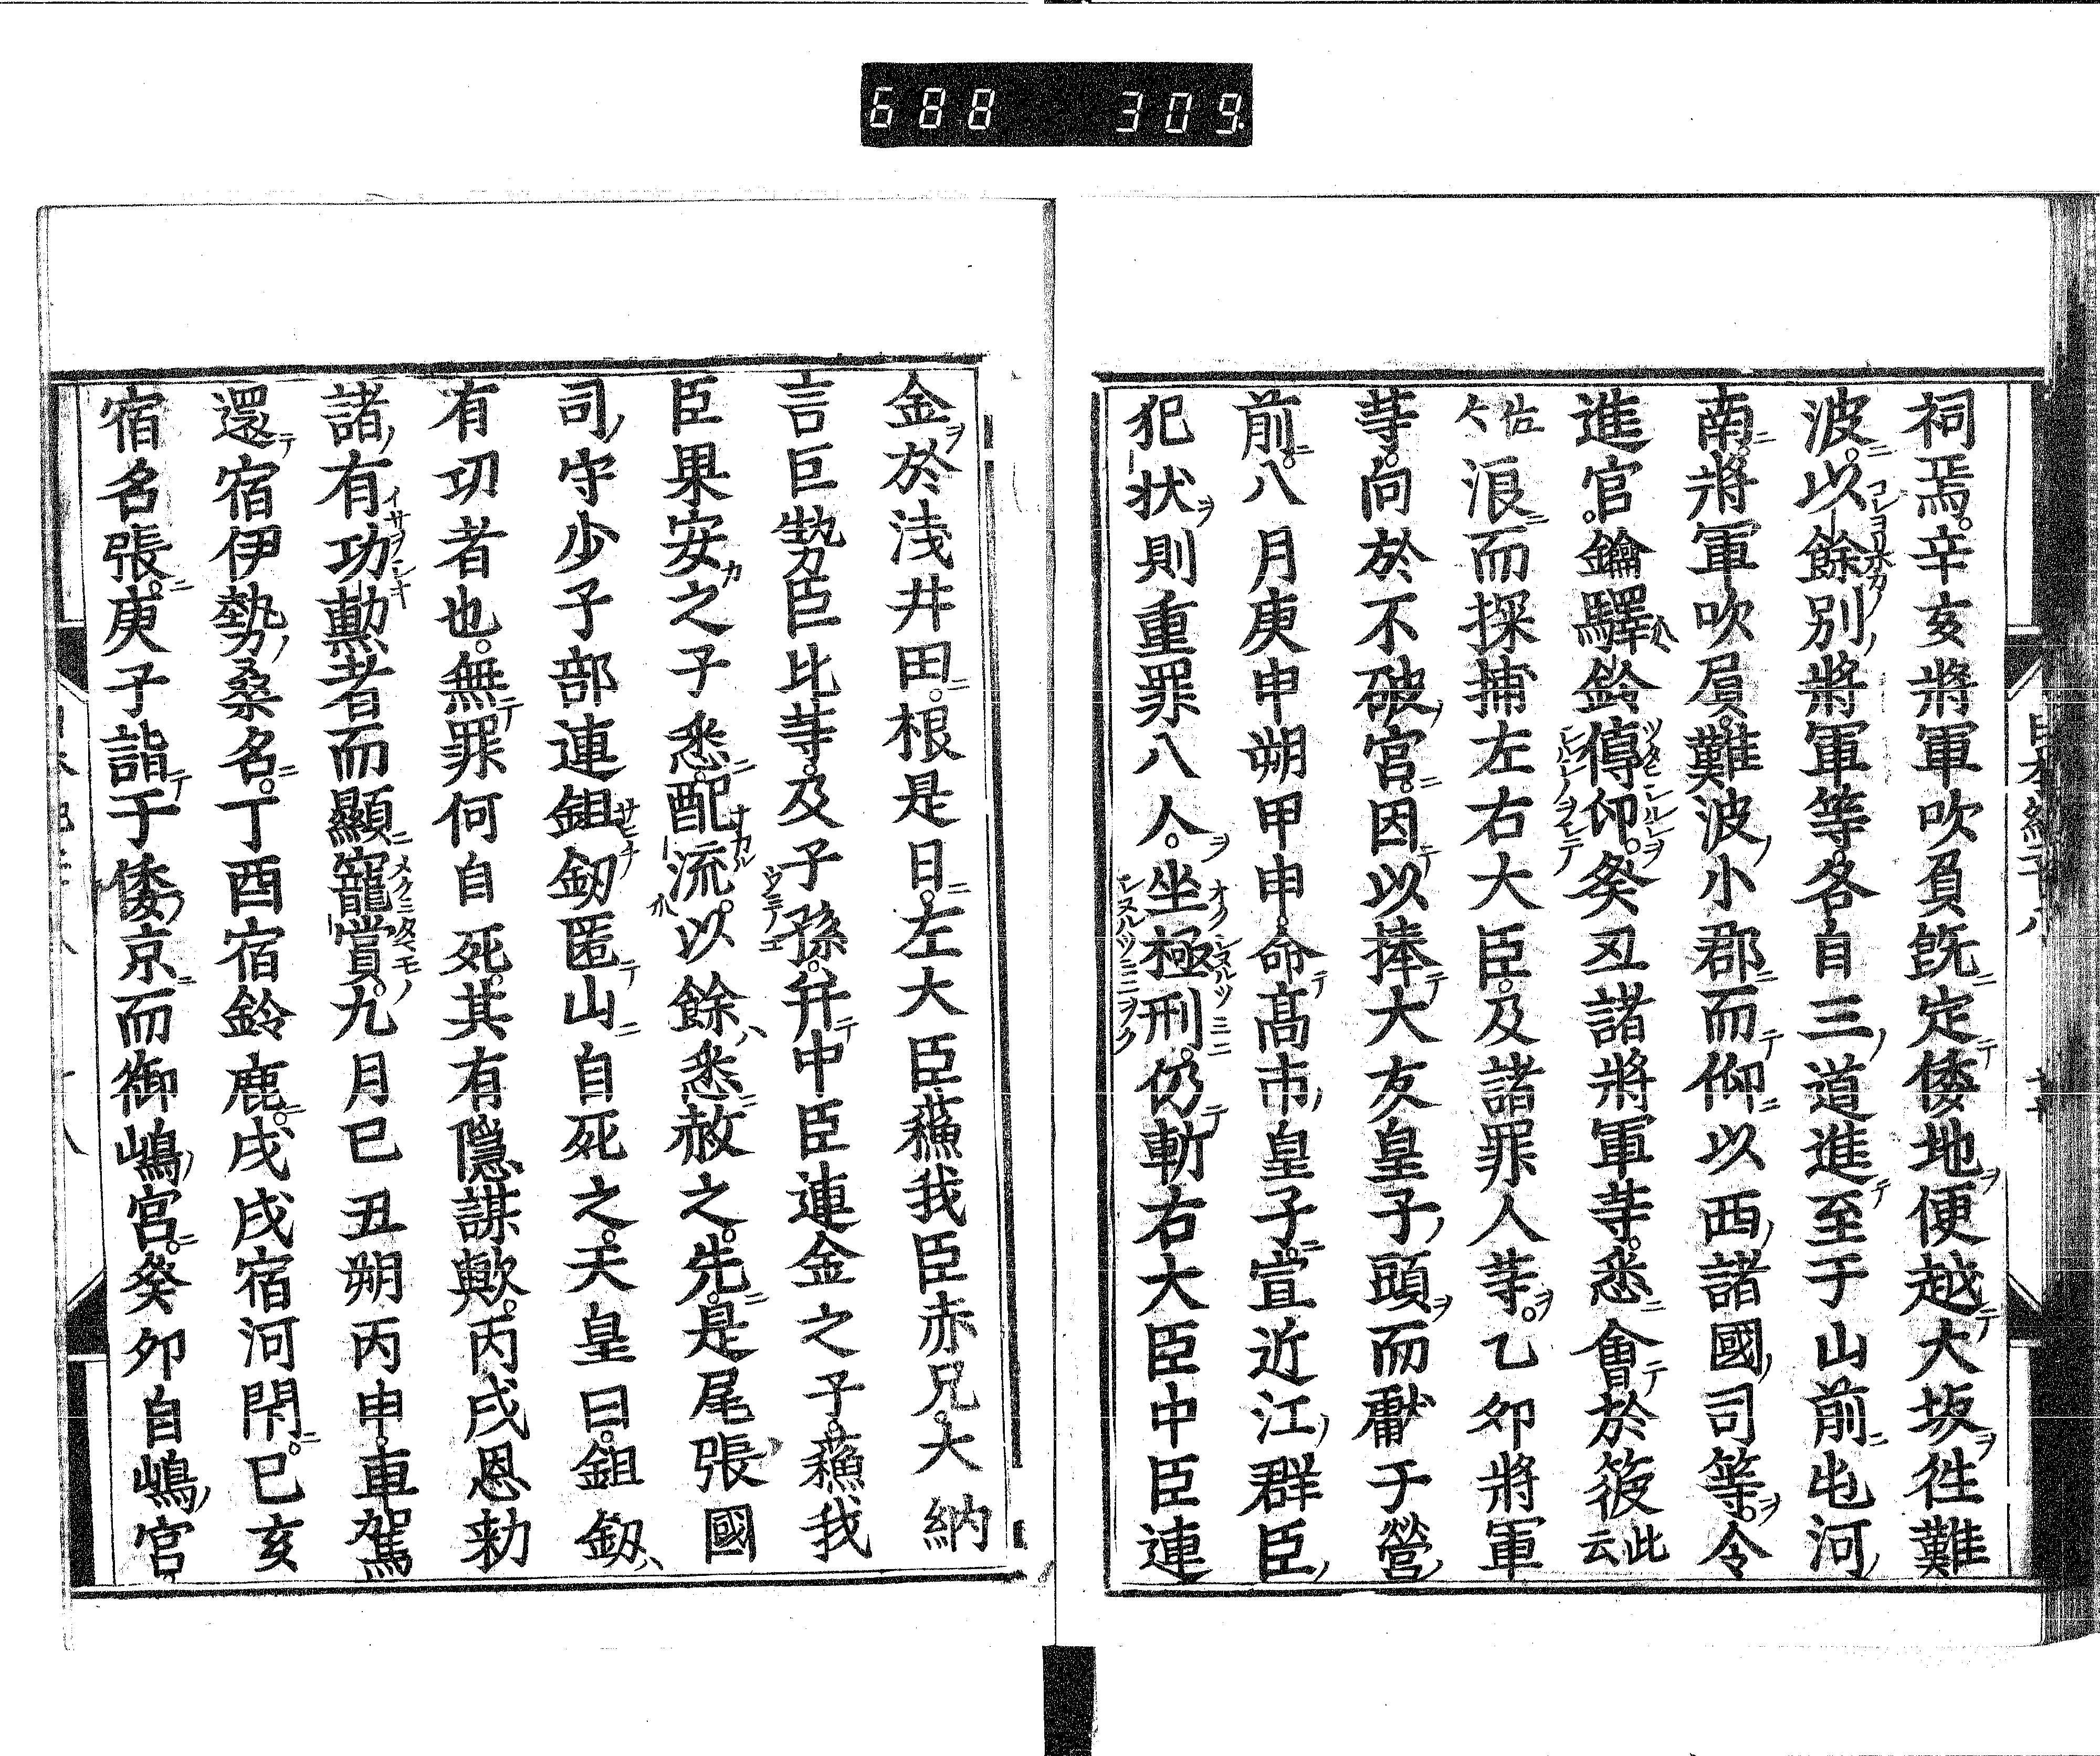 688 309
祠焉。辛亥將軍吹負既定倭地便越大坂徃難
波。以餘別將軍等。各自三道進至于山前屯河
南。將軍吹屓。難波小郡而仰以西諸國司等。令
進官。鑰驛鈴傳印。癸丑諸將軍等。悉會於筱此云
佐々浪而探捕左右大臣。及諸罪人等。乙卯將軍
等。向於不破宮。因以捧大友皇子頭而獻于營
前。八月庚申朔甲申。命髙市皇子。宣近江群臣
犯状則重罪八人。坐極刑。仍斬右大臣中臣連
金於浅井田。根是日。左大臣蘓我臣赤兄。大納
言巨勢臣比等。及子孫。并中臣連金之子。蘓我
臣果安之子悉。配流。以餘悉赦之。先。是尾張國
司守少子部連鉏釼匿山自死之。天皇曰。鉏釼
有功者也。無罪何自死。其有隠謀歟。丙戌恩勅
諸有功勲者而顯寵賞。九月己丑朔丙申。車駕
還宿伊勢桑名。丁酉宿鈴鹿。戊戌宿河閇。己亥
宿名張。庚子詣于倭京而御嶋宮。癸卯自嶋宮